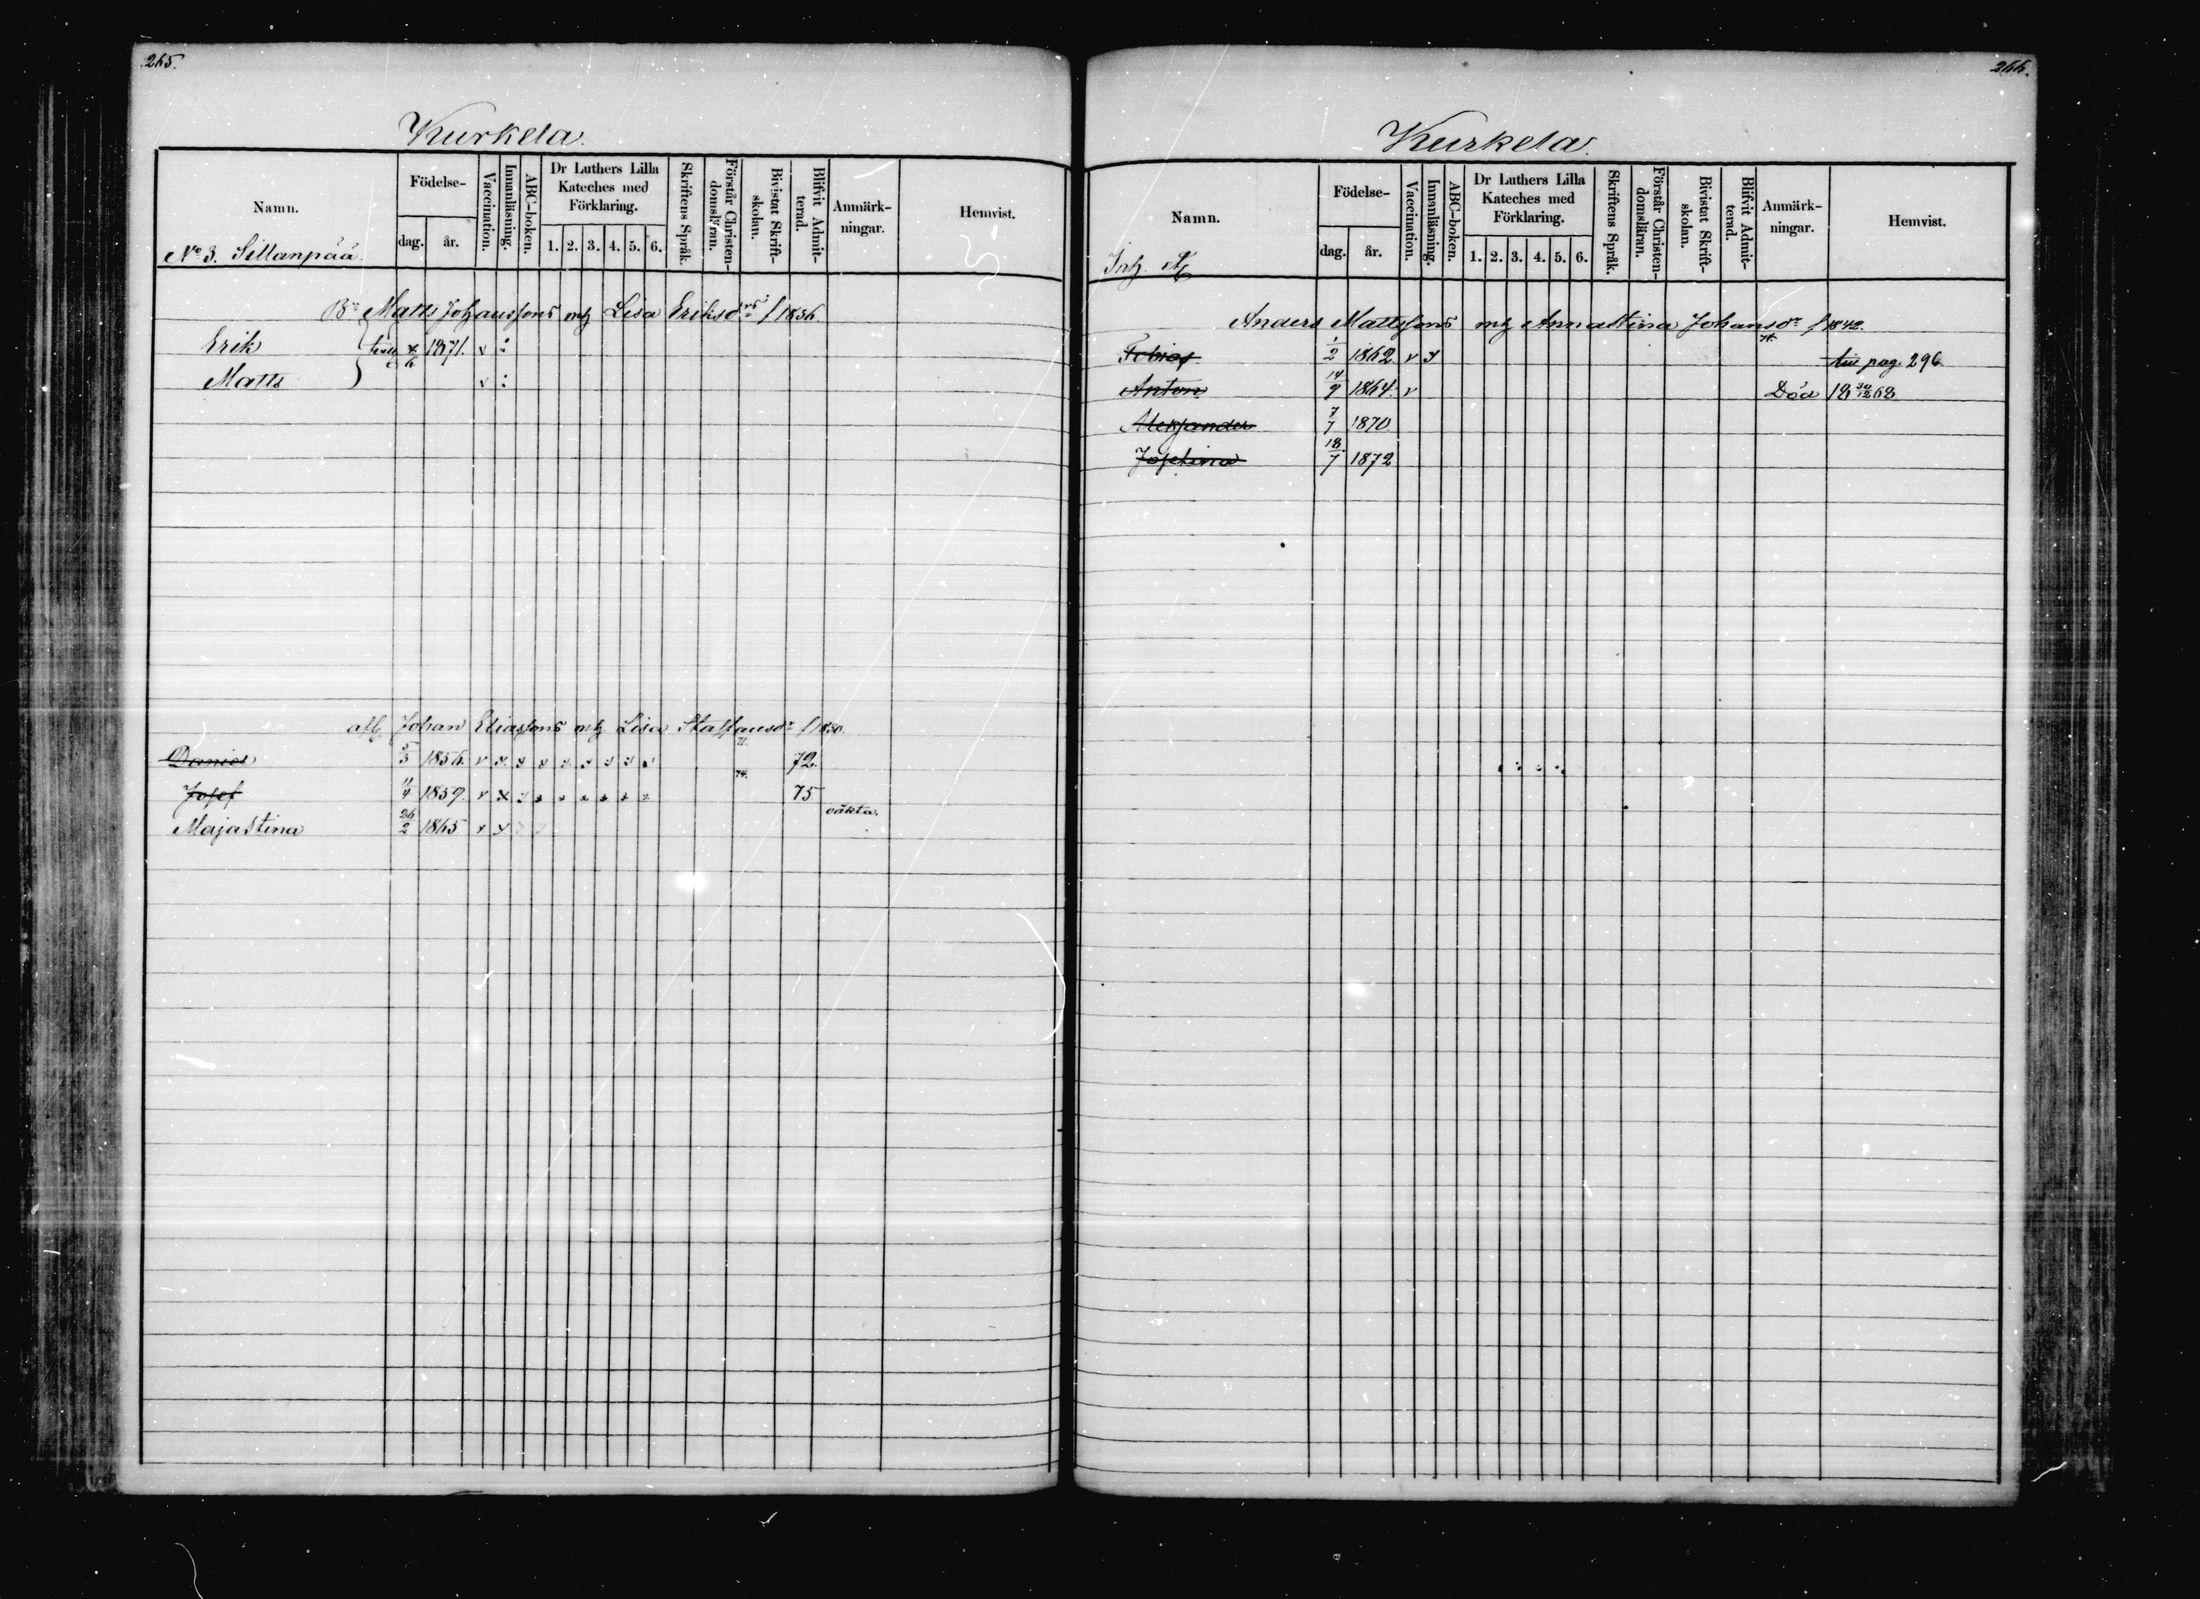 265.
Kurkela.
Namn.
Födelse-
dag.
år.
Vaccination.
Innanläsning.
ABC-boken.
Dr Luthers Lilla
Kateches med
Förklaring.
1. 2. 3. 4. 5. 6.
Skriftens Språk.
Förstår Christen-
domsläran.
Bivistat Skrift-
skolan.
Blifvit Admit-
terad.
Anmärk-
ningar.
Hemvist.
No 3. Sillanpää
Matts Johanssons Lisa Eriksdr f 1836
Erik 1871. v :
Matts v :
Johan Eliassons Lisa Staffansdr f 1830.
Daniel 5/3 1856. v 71. 72.
Josef 11/4 1859. v 74. 75
Maja Stina 26/2 1865 oäkta.
266.
Kurkela.
Namn.
Födelse-
dag.
år.
Vaccination.
Innanläsning.
ABC-boken.
Dr Luthers Lilla
Kateches med
Förklaring.
1. 2. 3. 4. 5. 6.
Skriftens Språk.
Förstår Christen-
domsläran.
Bivistat Skrift-
skolan.
Blifvit Admit-
terad.
Anmärk-
ningar.
Hemvist.
Inh.
Anders Mattssons Anna Stina Johansdr f 1842.
Tobias 1/2 1862 v pag. 296
Anton 14/9 1864. v Död 18 30/12 68
Aleksander 7/7 1870
Josefina 18/7 1872